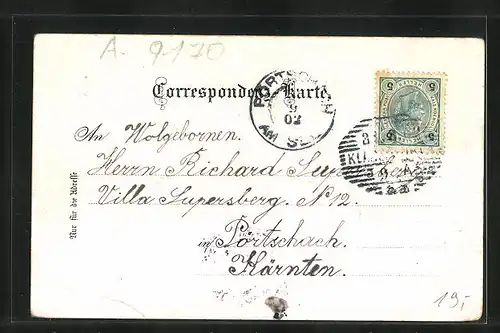 A. 9170
Correspondenz-Karte
PÖRTSCHACH
9
02
AM SEE
5 5
An Wolgebornen.
Herrn Richard
Villa Supersberg. N 12.
in Portschach.
Kärnten.
Nur für die Adresse
19,-